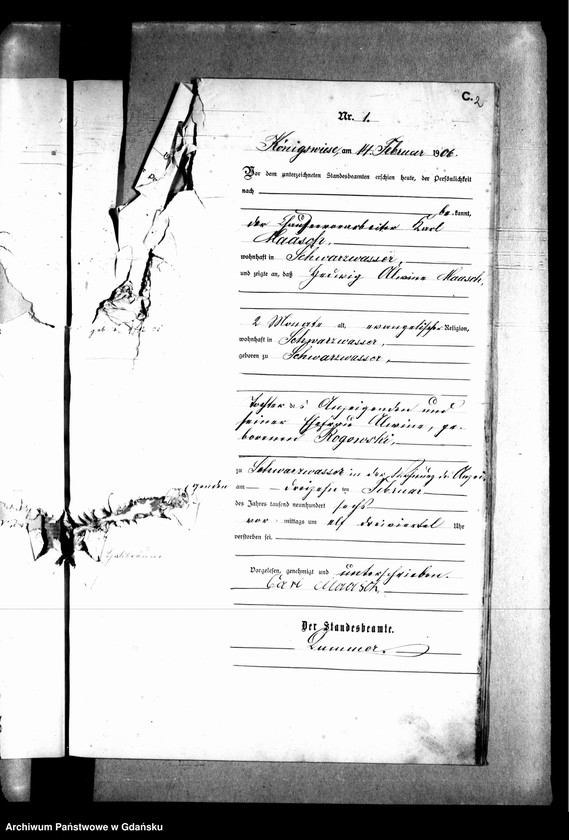 C.
2
Nr. 1.
Königswiese, am 14. Februar 1906.
Vor dem unterzeichneten Standesbeamten erschien heute, der Persönlichkeit
nach
be kannt,
der Karl
Maasch,
wohnhaft in Schwarzwasser,
und zeigte an, daß Hedwig Alwine Maasch,
2 Monate alt, evangelischer Religion,
wohnhaft in Schwarzwasser,
geboren zu Schwarzwasser,
Tochter des Anzeigenden und
seiner Ehefrau Alwine, ge-
borenen Rogowski,
zu Schwarzwasser in der Wohnung des Anzei-
genden am dreizehn ten Februar
des Jahres tausend neunhundert sechs
vor mittags um elf dreiviertel Uhr
verstorben sei.
Vorgelesen, genehmigt und unterschrieben.
Carl Maasch
Der Standesbeamte.
Archiwum Państwowe w Gdańsku